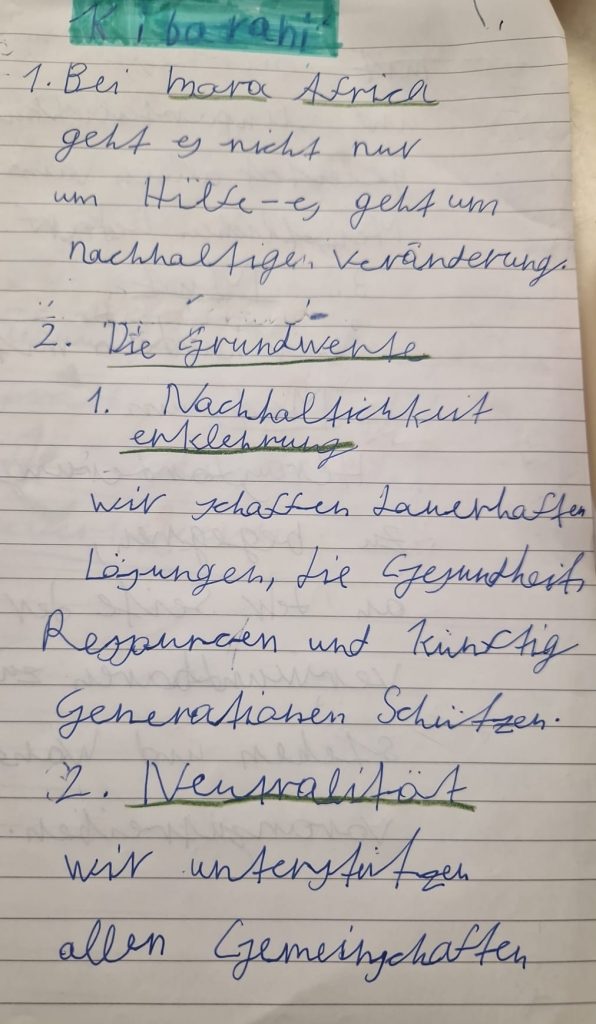 Kibarani
1. Bei mara Africa
geht es nicht nur
um Hilfe - es geht um
nachhaltigen Veränderung.
2. Die Grundwerte
1. Nachhaltichkeit
erklehrung
wir schaffen dauerhaften
Lösungen, die Gesundheit,
Ressourcen und künftig
Generationen Schützen.
2. Neutralität
wir unterstützen
allen Gemeinschaften